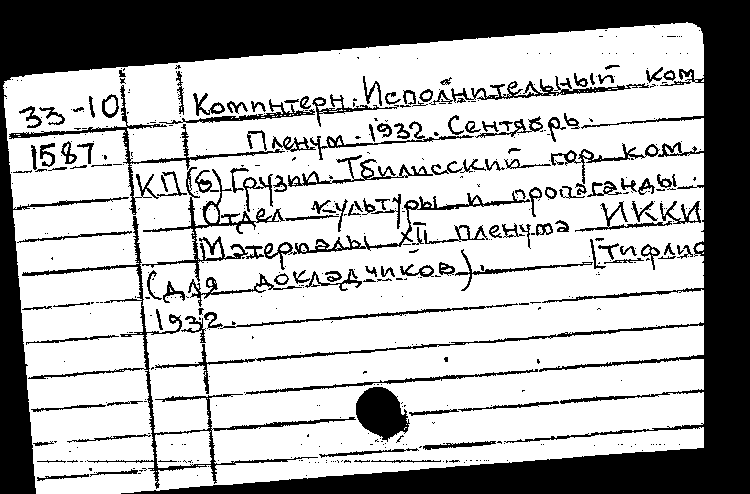 33-10 Коминтерн. Исполнительный ком
1587. Пленум. 1932. Сентябрь.
КП(б) Грузии. Тбилисский гор. ком.
Отдел культуры и пропаганды.
Материалы XII пленума ИККИ
(для докладчиков). [Тифлис
1932.